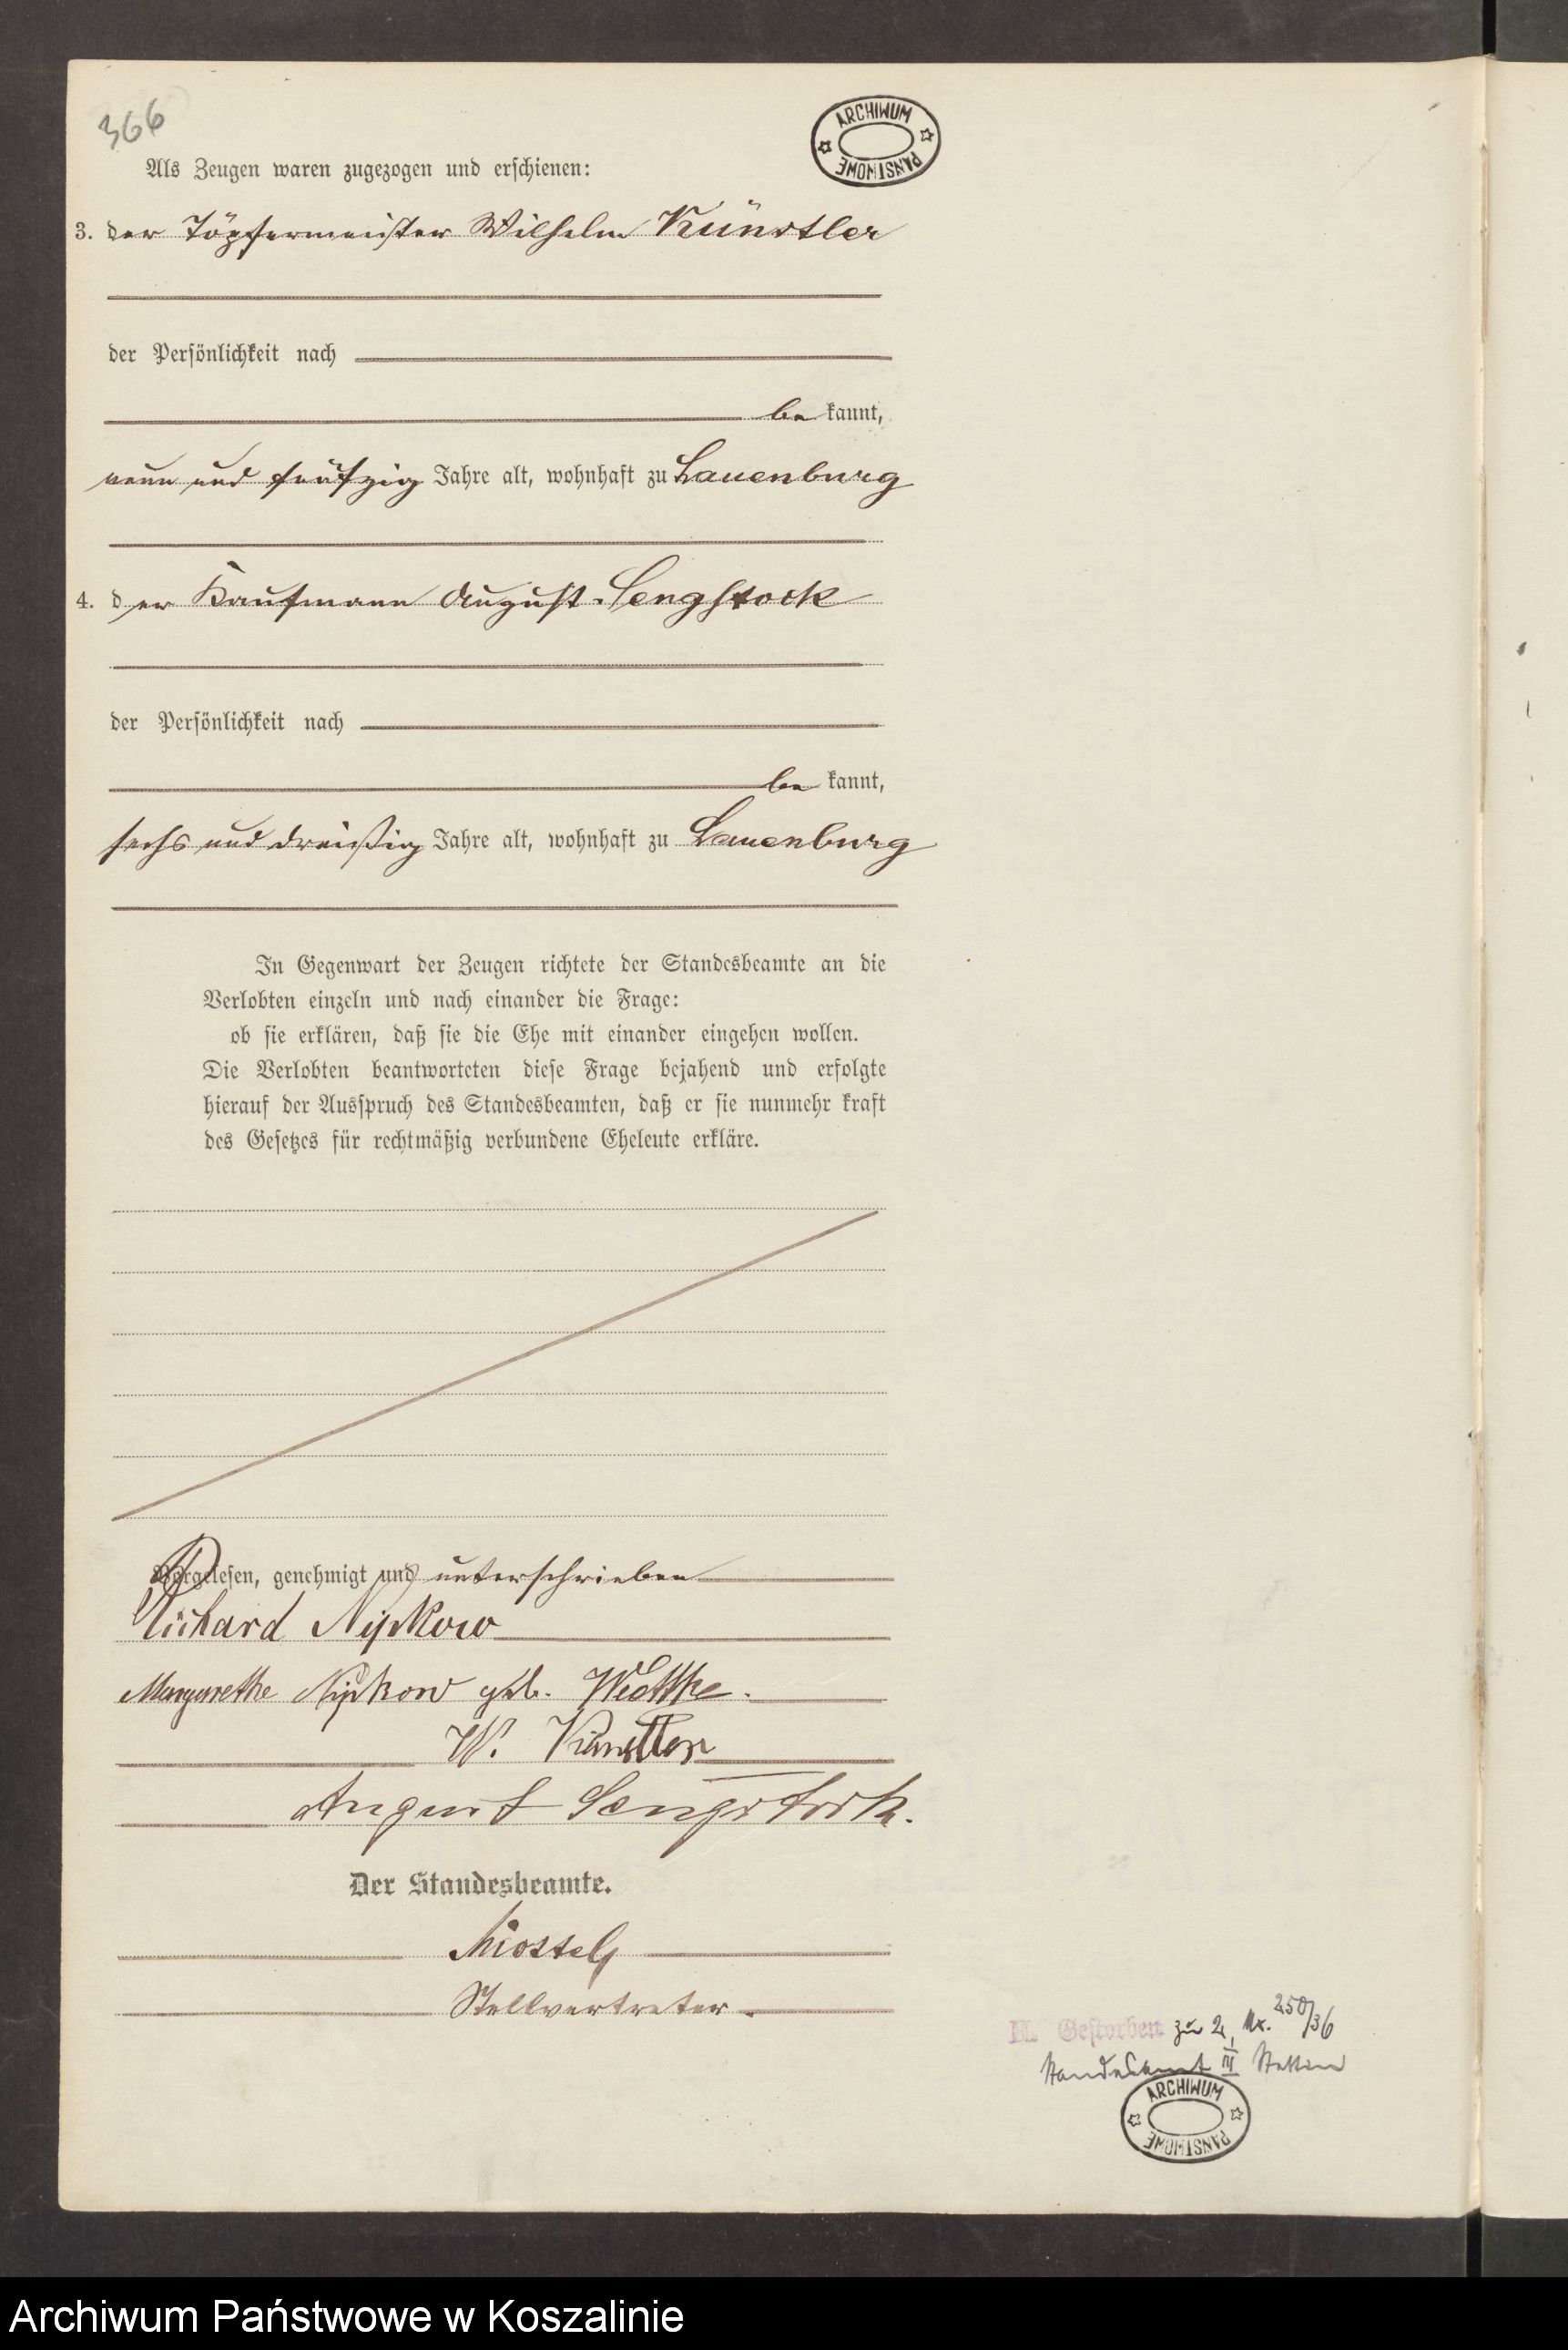 366
ARCHIWUM PAŃSTWOWE
Als Zeugen waren zugezogen und erschienen:
3. der Töpfermeister Wilhelm Künstler
der Persönlichkeit nach
be kannt,
neun und fünfzig Jahre alt, wohnhaft zu Lauenburg
4. der Kaufmann August Sengstock
der Persönlichkeit nach
be kannt,
sechs und dreißig Jahre alt, wohnhaft zu Lauenburg
In Gegenwart der Zeugen richtete der Standesbeamte an die
Verlobten einzeln und nach einander die Frage:
ob sie erklären, daß sie die Ehe mit einander eingehen wollen.
Die Verlobten beantworteten diese Frage bejahend und erfolgte
hierauf der Ausspruch des Standesbeamten, daß er sie nunmehr kraft
des Gesetzes für rechtmäßig verbundene Eheleute erkläre.
Vorgelesen, genehmigt und unterschrieben
Richard Nipkow
Margarethe Nipkow geb.
W. Künstler
August Sengstock.
Der Standesbeamte.
Stellvertreter.
Gestorben zu 2, Nr. 250/36
Standesamt III Stettin
ARCHIWUM PAŃSTWOWE
Archiwum Państwowe w Koszalinie